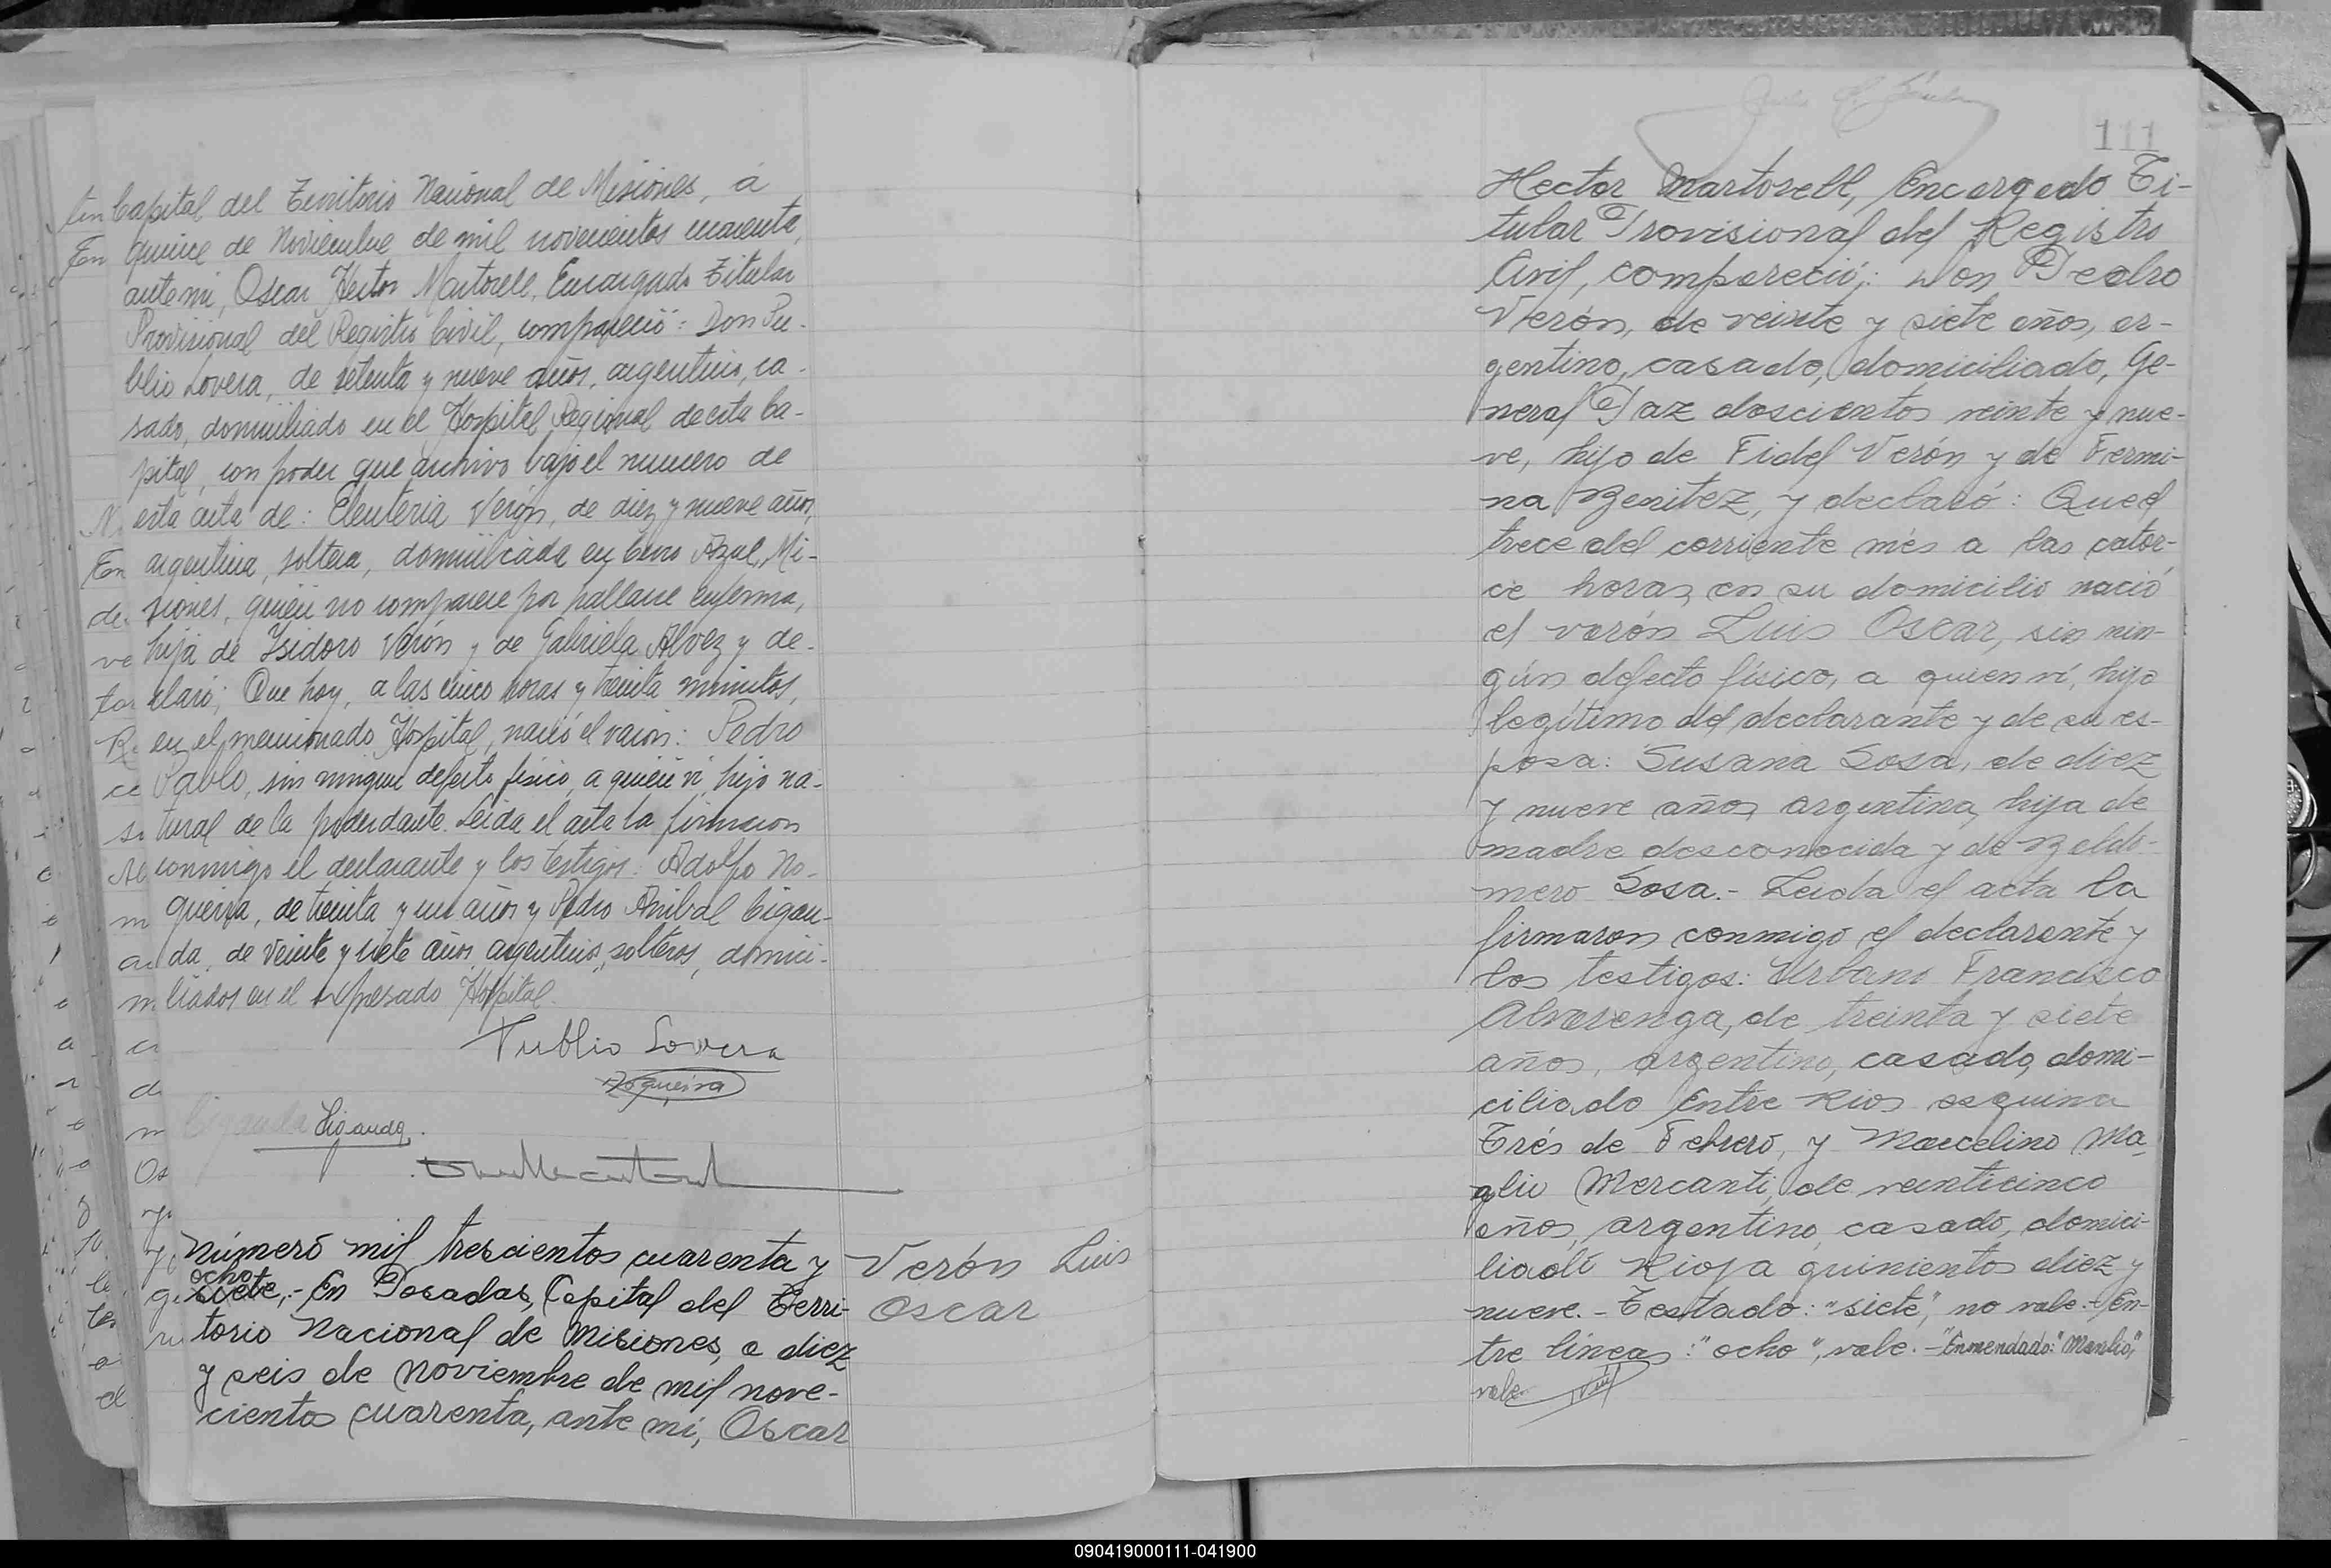 Capital del Territorio Nacional de Misiones, á
quince de Noviembre de mil novecientos cuarenta,
ante mi, Oscar Hector Martorell, Encargado Titular
Provisional del Registro Civil, compareció: Don Pu-
blio Lovera, de setenta y nueve años, argentino, ca-
sado, domiciliado en el Hospital Regional de esta Ca-
pital, con poder que archivo bajo el numero de
esta acta de: Eleuteria Verón, de diez y nueve años,
argentina, soltera, domiciliada en Cerro Azul, Mi-
siones, quien no comparece por hallarse enferma,
hija de Isidoro Verón y de Gabriela Alvez y de-
claró; Que hoy, a las cinco horas y treinta minutos,
en el mencionado Hospital, nació el varon: Pedro
Pablo, sin ningun defecto fisico, a quien vi, hijo na-
tural de la poderdante. Leida el acta la firmaron
conmigo el declarante y los testigos: Adolfo No-
gueira, de treinta y un años y Pedro Anibal Cigan-
da, de veinte y siete años, argentinos, solteros, domici-
liados en el expresado Hospital.
Publio Lovera
Nogueira
Ciganda
Número mil trescientos cuarenta y
ocho
siete,.- En Posadas, Capital del Terri-
torio Nacional de Misiones, a diez
y seis de Noviembre de mil nove-
cientos cuarenta, ante mi, Oscar
Verón Luis
Oscar
111
Hector Martorell, Encargado Ti-
tular Provisional del Registro
Civil, compareció: Don Pedro
Verón, de veinte y siete años, ar-
gentino, casado, domiciliado, Ge-
neral Paz doscientos veinte y nue-
ve, hijo de Fidel Verón y de Fermi-
na Benitez, y declaró: Que el
trece del corriente més a las cator-
ce horas, en su domicilio nació
el varón Luis Oscar, sin nin-
gún defecto físico, a quien ví, hijo
legítimo del declarante y de su es-
posa: Susana Sosa, de diez
y nueve años, argentina, hija de
madre desconocida y de Beldo-
mero Sosa.- Leida el acta la
firmaron conmigo el declarante y
los testigos: Urbano Francisco
Alvarenga, de treinta y siete
años, argentino, casado, domi-
ciliado Entre Rios esquina
Trés de Febrero, y Marcelino Ma
glio Mercanti, de veinticinco
años, argentino, casado, domici-
liado Rioja quinientos diez y
nueve.- Testado: "siete", no vale.- En-
tre líneas: "ocho", vale.- Enmendado: "Manlio,"
vale
090419000111-041900